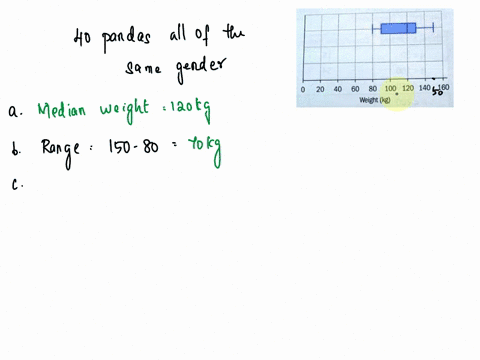 40 pandas all of the
same gender
a. Median weight = 120 kg
b. Range = 150 - 80 = 70kg
c.
0 20 40 60 80 100 120 140 160
150
Weight (kg)